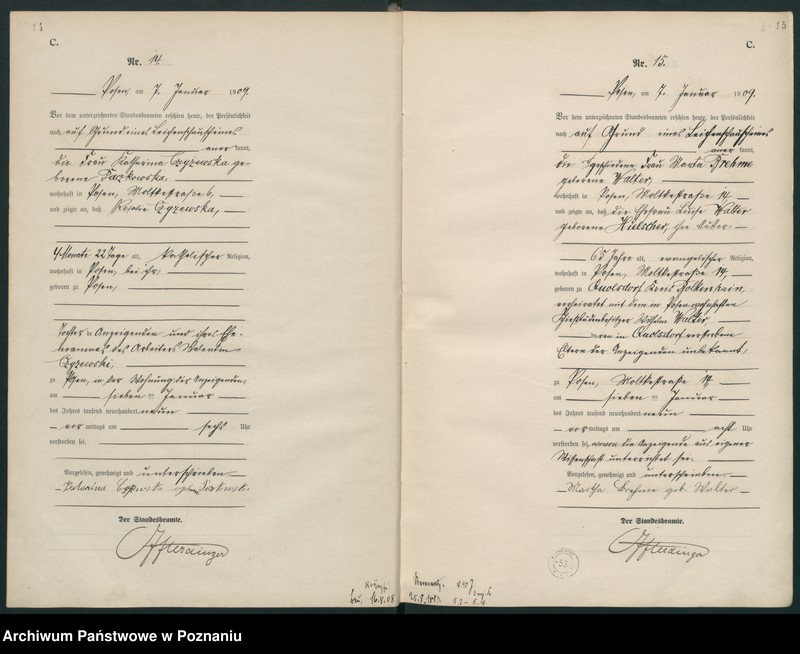 11
C.
Nr. 14.
Posen, am 7. Januar 1909.
Vor dem unterzeichneten Standesbeamten erschien heute, der Persönlichkeit
nach auf Grund eines Leichenschauscheines
aner kannt,
die Frau Katharina Czyzewska ge-
borene
wohnhaft in Posen, Moltkestraße
und zeigte an, daß Rosalie Czyzewska,
4 Monate 22 Tage alt, katholischer Religion,
wohnhaft in Posen, bei ihr,
geboren zu Posen,
Tochter der Anzeigenden und ihres Ehe-
mannes des Arbeiters Valentin
Czyzewski,
zu Posen, in der Wohnung der Anzeigenden,
am sieben ten Januar
des Jahres tausend neunhundert neun
vor mittags um sechs Uhr
verstorben sei.
Vorgelesen, genehmigt und unterschrieben
Der Standesbeamte.
15
C.
Nr. 15.
Posen, am 7. Januar 1909.
Vor dem unterzeichneten Standesbeamten erschien heute, der Persönlichkeit
nach auf Grund eines Leichenschauscheines
aner kannt,
die geschiedene Frau Marta Brehme
geborene Walter,
wohnhaft in Posen, Moltkestraße 14
und zeigte an, daß die Ehefrau Luise Walter
geborene Hielscher, ihre Mutter
65 Jahre alt, evangelischer Religion,
wohnhaft in Posen, Moltkestraße 14,
geboren zu Quolsdorf Kreis Bolkenhain,
verheiratet mit dem in Posen wohnhaften
Wilhelm Walter,
in Quolsdorf verstorbene
Eltern der Anzeigenden unbekannt,
zu Posen, Moltkestraße 14
am sieben ten Januar
des Jahres tausend neunhundert neun
vor mittags um acht Uhr
verstorben sei, wovon die Anzeigende aus eigener
Wissenschaft unterrichtet sei.
Vorgelesen, genehmigt und unterschrieben
Martha Brehme geb. Walter
Der Standesbeamte.
Archiwum Państwowe w Poznaniu